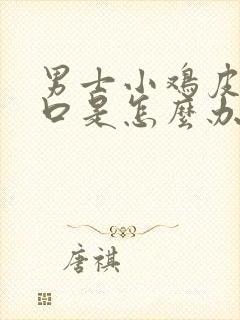 男士小鸡皮
口是怎麼办
唐祺